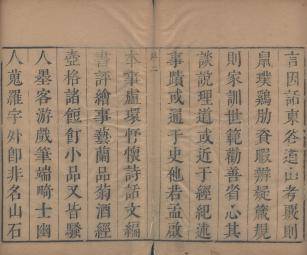 言因話東谷道山考覈則
鼠璞雞肋資暇辯疑箴規
則家訓世範勸善省心其
談說理道或近於經紀述
事蹟或通于史他若孟啟
序二
本事盧瓌抒懷詩話文編
書評繪事藝蘭品菊酒經
壺格諸飣小品又皆騷
人墨客游戲筆端畸士幽
人蒐羅宇外即非名山石